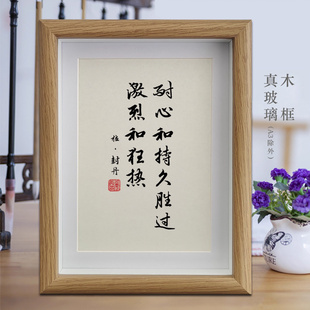 耐心和持久胜过
激烈和狂热
拉·封丹
木框
真玻璃
(A3除外)